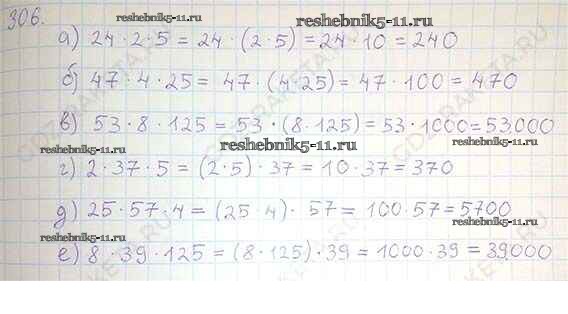 306.
reshebnik5-11.ru
reshebnik5-11.ru
а) 24 · 2 · 5 = 24 · (2 · 5) = 24 · 10 = 240
б) 47 · 4 · 25 = 47 · (4 · 25) = 47 · 100 = 470
в) 53 · 8 · 125 = 53 · (8 · 125) = 53 · 1000 = 53000
reshebnik5-11.ru
reshebnik5-11.ru
reshebnik5-11.ru
г) 2 · 37 · 5 = (2 · 5) · 37 = 10 · 37 = 370
д) 25 · 57 · 4 = (25 · 4) · 57 = 100 · 57 = 5700
reshebnik5-11.ru
reshebnik5-11.ru
е) 8 · 39 · 125 = (8 · 125) · 39 = 1000 · 39 = 39000